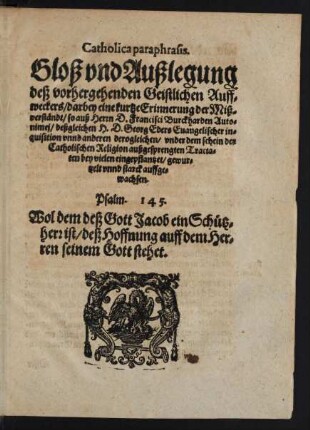 Catholica paraphrasis.
Gloß vnd Außlegung
deß vorhergehenden Geistlichen Auff-
weckers/ darbey eine kurtze Erinnerung der Miß-
verständt/ so auß Herrn D. Francisci Burckharden Auto-
nomei/ deßgleichen H. D. Georg Eders Euangelischer in-
quisition vnnd anderen dergleichen/ vnder dem schein des
Catholischen Religion außgesprengten Tracta-
ten bey vielen eingepflantzet/ gewur-
tzelt vnnd starck auffge-
wachsen.
Psalm. 145.
Wol dem deß Gott Jacob ein Schütz-
herr ist/ deß Hoffnung auff dem Her-
ren seinem Gott stehet.